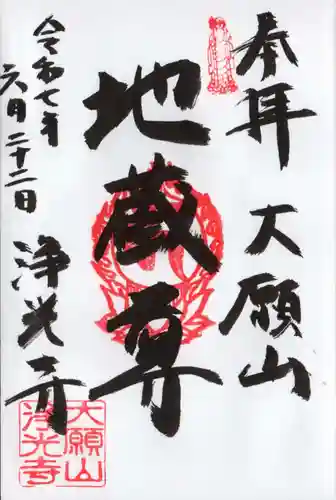 奉拝
大願山
地蔵尊
令和七年
六月二十二日
浄光寺
大願山
浄光寺